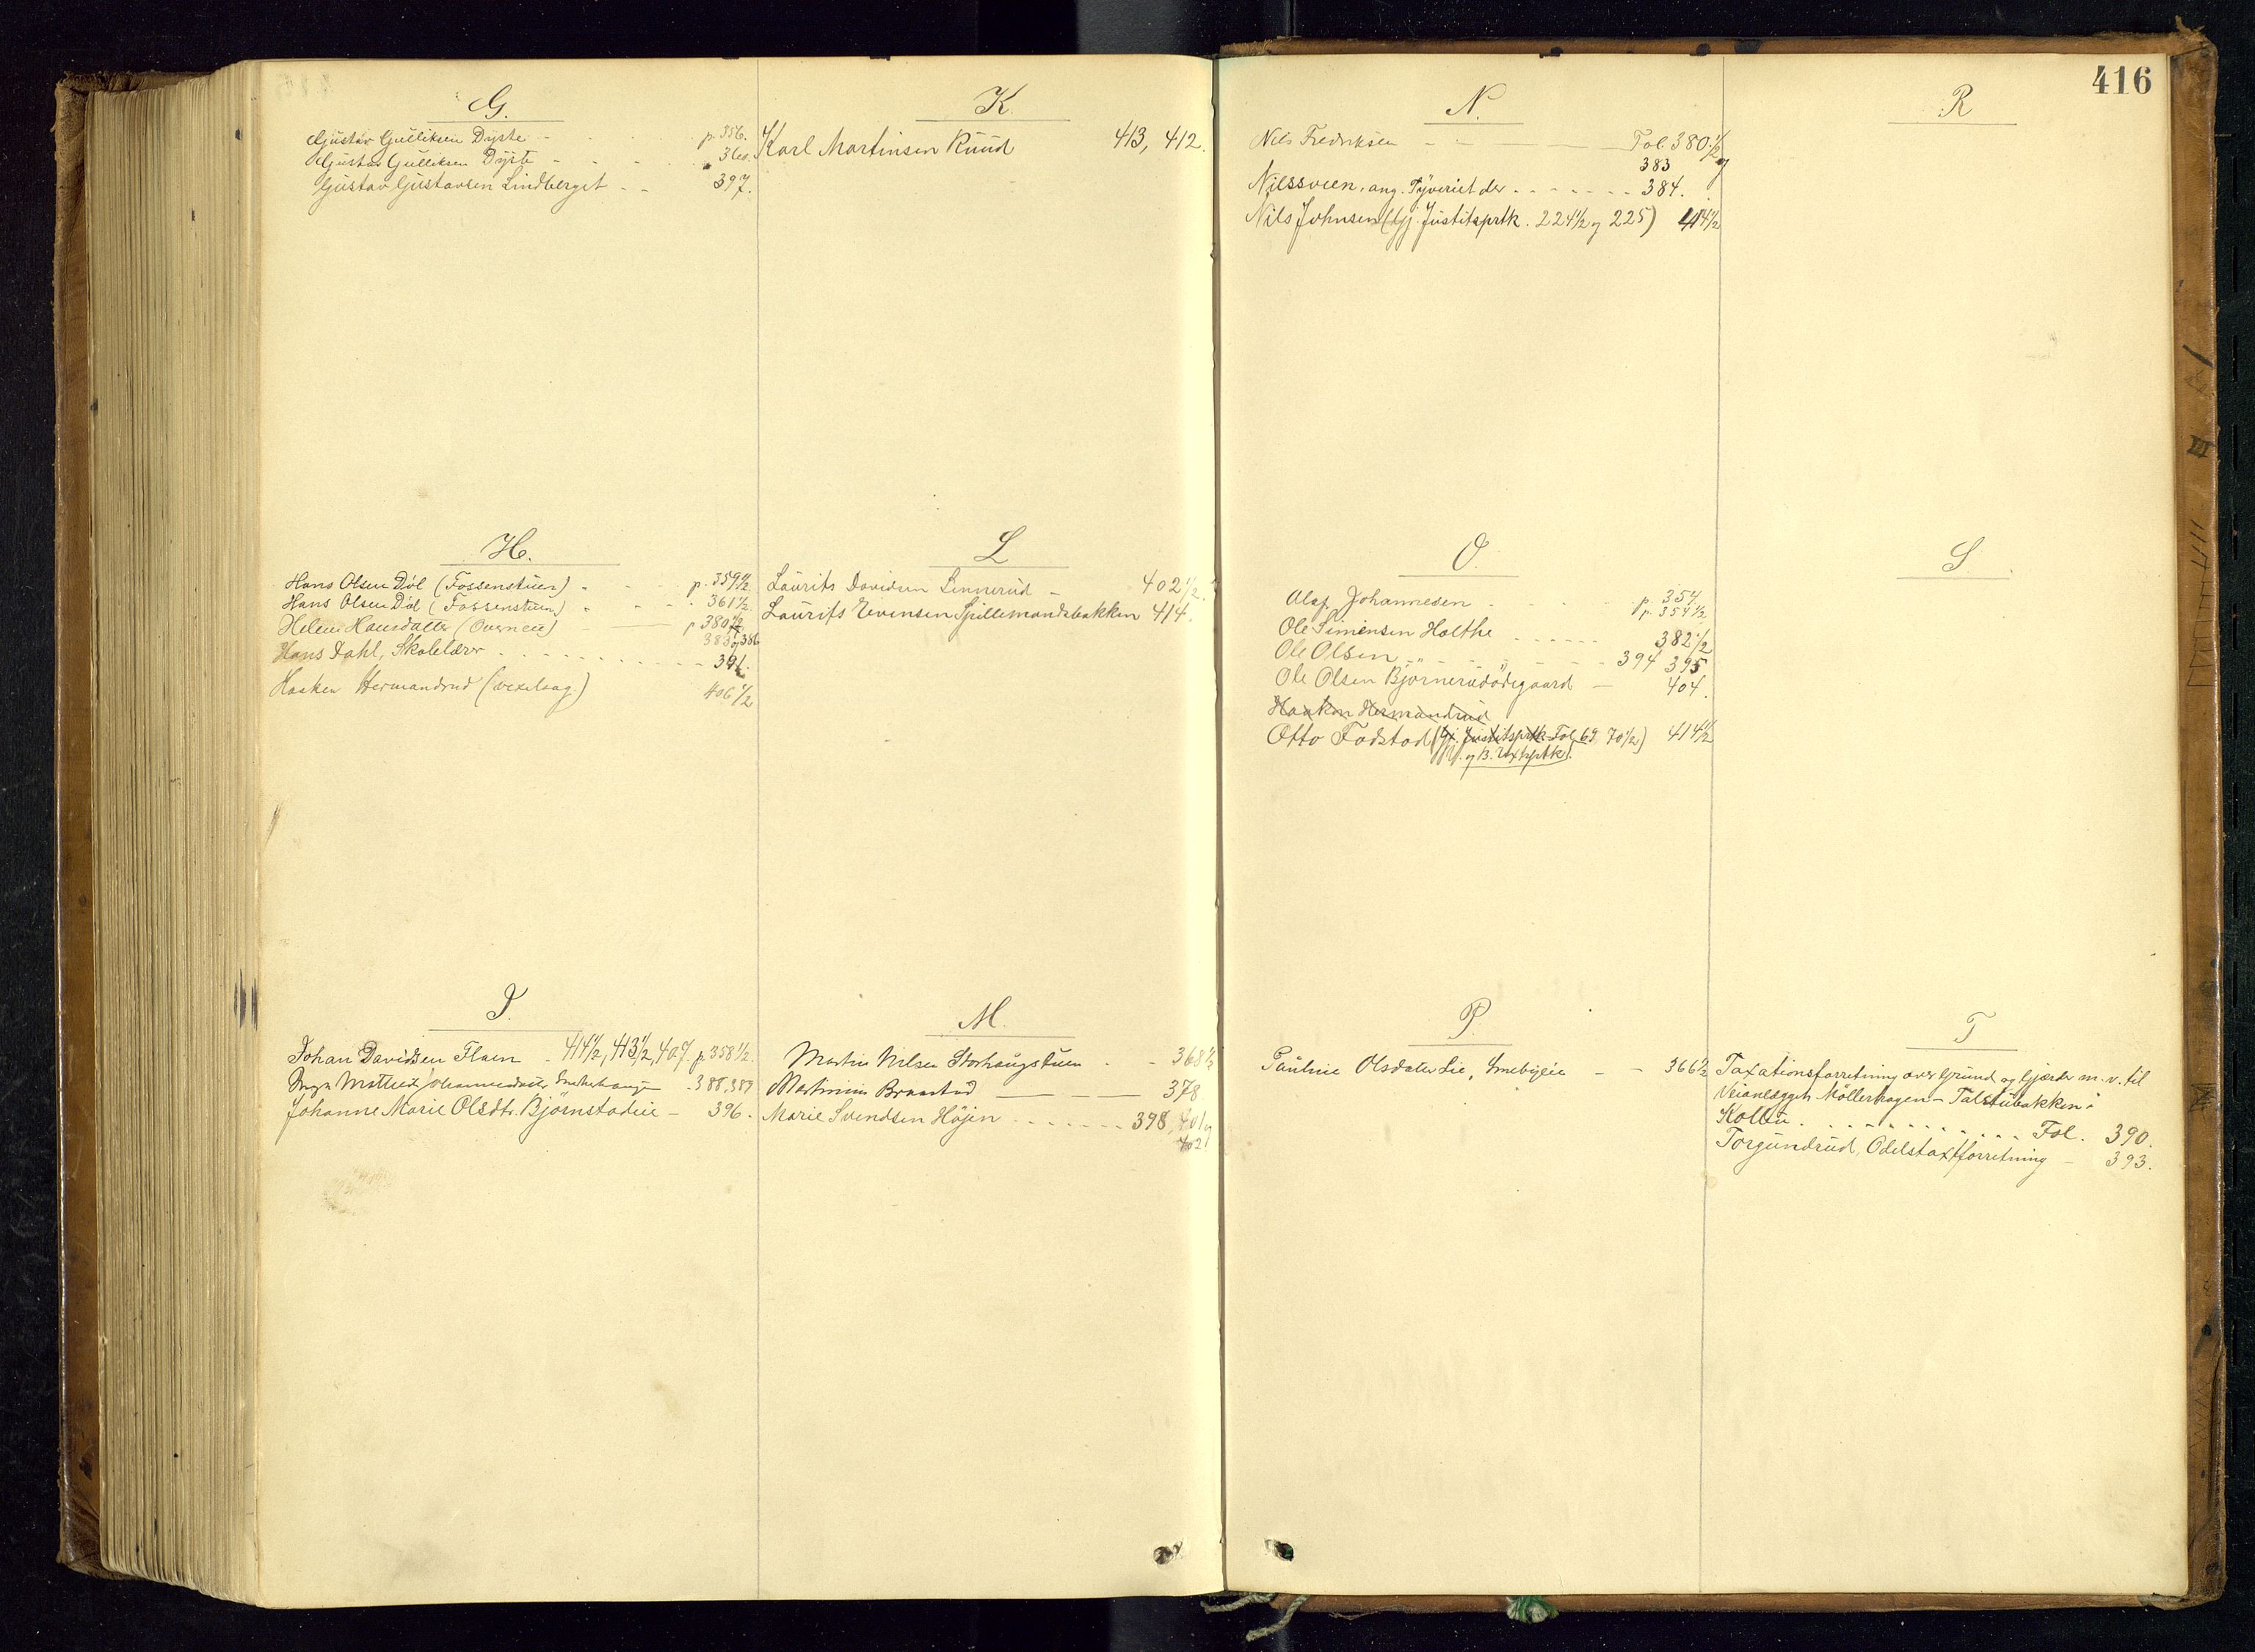 G.
Gustav Gulliksen Dyste - p. 356.
Gustav Gulliksen Dyste - - - - 360.
Gustav Gustavsen Lindberget - - 397.
H.
Hans Olsen Döl (Fossenstuen) - p. 359½
Hans Olsen Döl (Fossenstuen) - - - 361½.
Helene Hansdatter (Overnen) p 380½
383 og 386
Hans Dahl, Skolelærer - - - 391.
Haaken Hermandrud (vexelsag.) 406½
I.
Johan Davidsen Flaen - 414½, 413½, 407. p 358½.
Johannesdatter 388.389
Johanne Marie Olsdtr. Björnstadeie - 396.
K
Karl Martinsen Ruud 413, 412.
L
Laurits Davidsen Linnerud - 402½.
Laurits Evensen Spillemandsbakken 414.
M.
Martin Nilsen Storhaugstuen - - 368½
Martinius Braastad 378
Marie Svendsen Höjen - - - 398, 401 og
402
416
N.
Nils Fredriksen - - Fol. 380½
383 og
Nilssveen, ang. Tyveriet der - - - 384.
Nils Johnsen (Gj. Justitsprtk. 224½ og 225) 414½
O.
Olaf Johannesen - p. 354
p. 354½
Ole Simensen Holthe - - - 382½
Ole Olsen - - - 394 395
Ole Olsen Björnerudödegaard - 404.
Haakon Hermandrud
Otto Fodstad (Gj. Justitsprtk Fol. 69. 70½) 414½
P.
Pauline Olsdatter Lie, Smebyeie - - 366½
R
S.
T
Taxationsforretning over Grund og Gjærder m. v. til
Veianlægget Möllerhagen - Talstubakken i
Kolbu - - - Fol. 390.
Torgundrud, Odelstaxtforretning - 393.